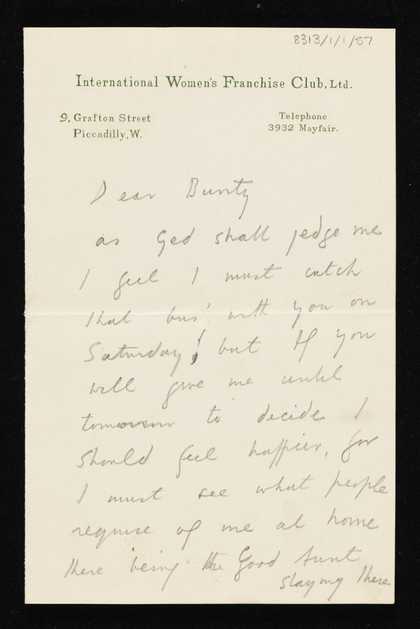 8313/1/1/57
International Women's Franchise Club, Ltd.
9, Grafton Street
Piccadilly, W.
Telephone
3932 Mayfair.
Dear Bunty
as God shall jedge me
I feel I must catch
that bus' with you on
Saturday! but if you
will give me until
tomorrow to decide I
should feel happier, for
I must see what people
require of me at home
there being the Good Aunt
staying there